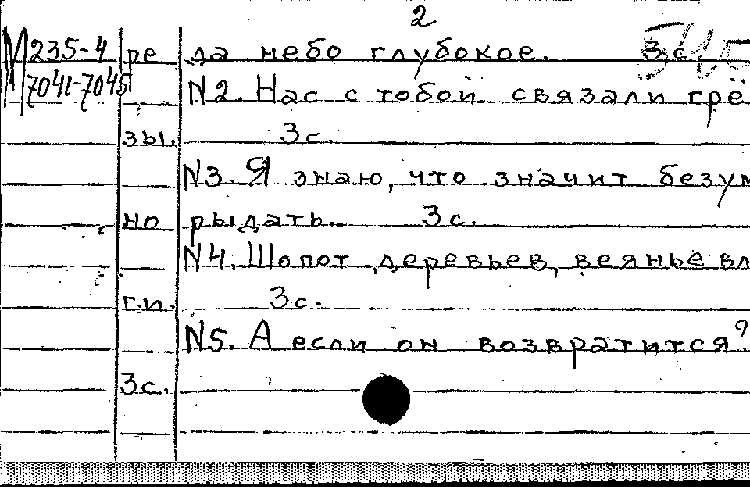 2
М 235-4 ре да небо глубокое. 3 с. 545
7041-7045 N2. Нас с тобой связали грё
зы. 3 с.
N3. Я знаю, что значит безум
но рыдать. 3 с.
N4. Шопот деревьев, веянье вл
ги. 3 с.
N5. А если он возвратится?
3 с.